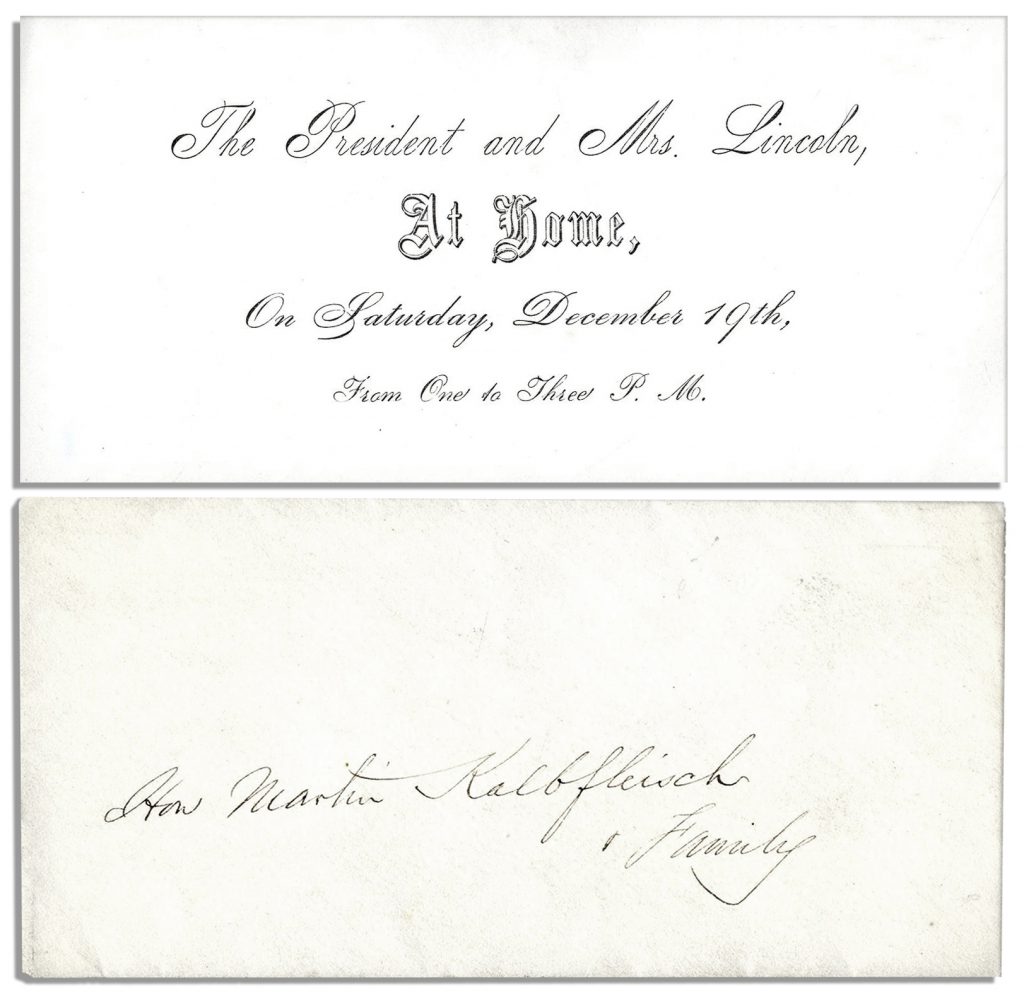 The President and Mrs. Lincoln,
At Home,
On Saturday, December 19th,
From One to Three P. M.
Hon Martin Kalbfleisch
& Family